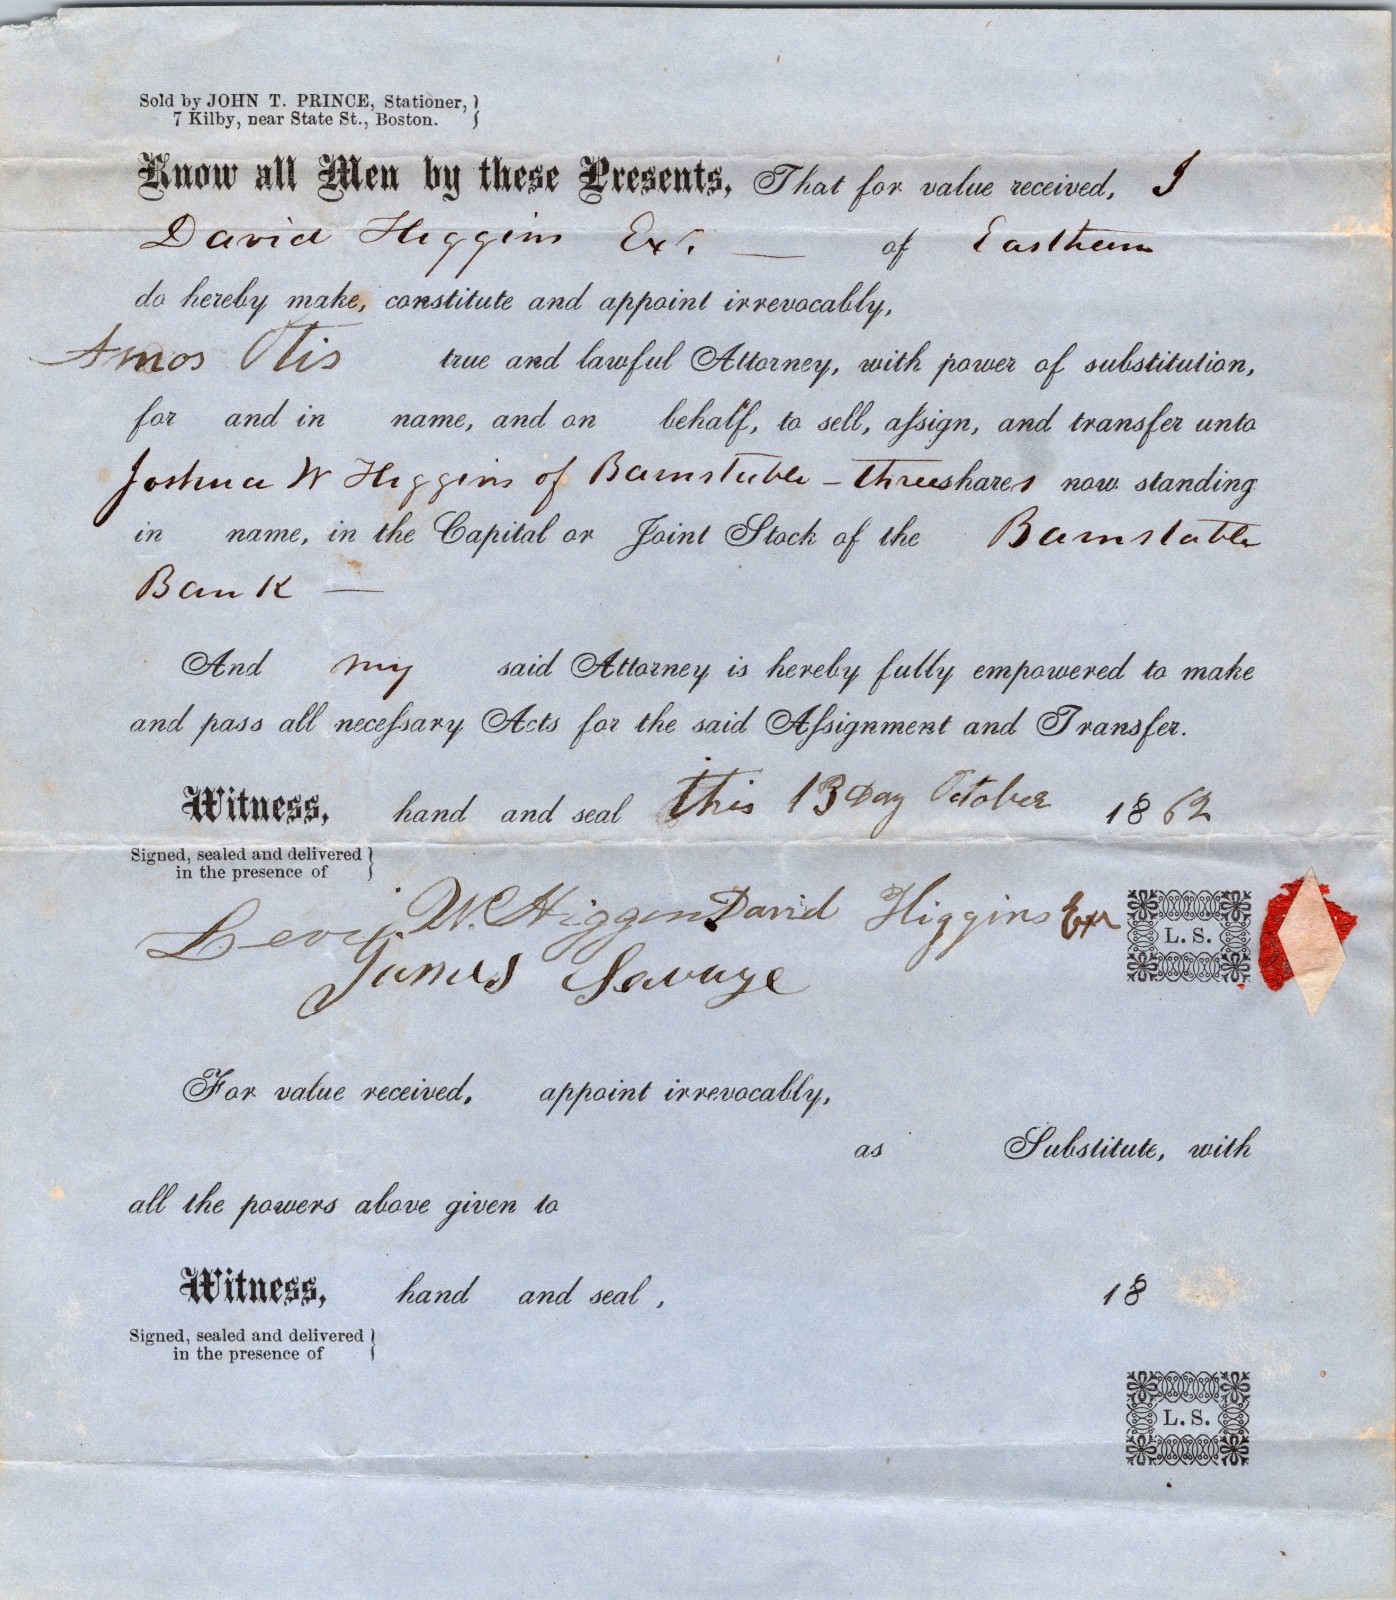 Sold by JOHN T. PRINCE, Stationer, }
7 Kilby, near State St., Boston.
Know all Men by these Presents, That for value received, I
David Higgins Exr. — of Eastham
do hereby make, constitute and appoint irrevocably,
Amos Otis true and lawful Attorney, with power of substitution,
for and in name, and on behalf, to sell, aſsign, and transfer unto
Joshua W Higgins of Barnstable – three shares now standing
in name, in the Capital or Joint Stock of the Barnstable
Bank —
And my said Attorney is hereby fully empowered to make
and pass all neceſsary Acts for the said Aſsignment and Transfer.
Witness, hand and seal this 13 Day October 1862
Signed, sealed and delivered }
in the presence of
Levi W. Higgins David Higgins Exr L. S.
James Savage
For value received, appoint irrevocably,
as Substitute, with
all the powers above given to
Witness, hand and seal, 18
Signed, sealed and delivered }
in the presence of
L. S.